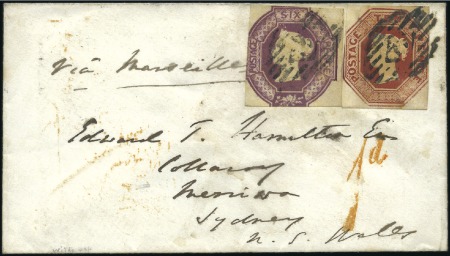 POSTAGE SIX
POSTAGE
via Marseilles
Edward T. Hamilton Esq
Collaroy
Merriwa
Sydney
N. S. Wales
1d